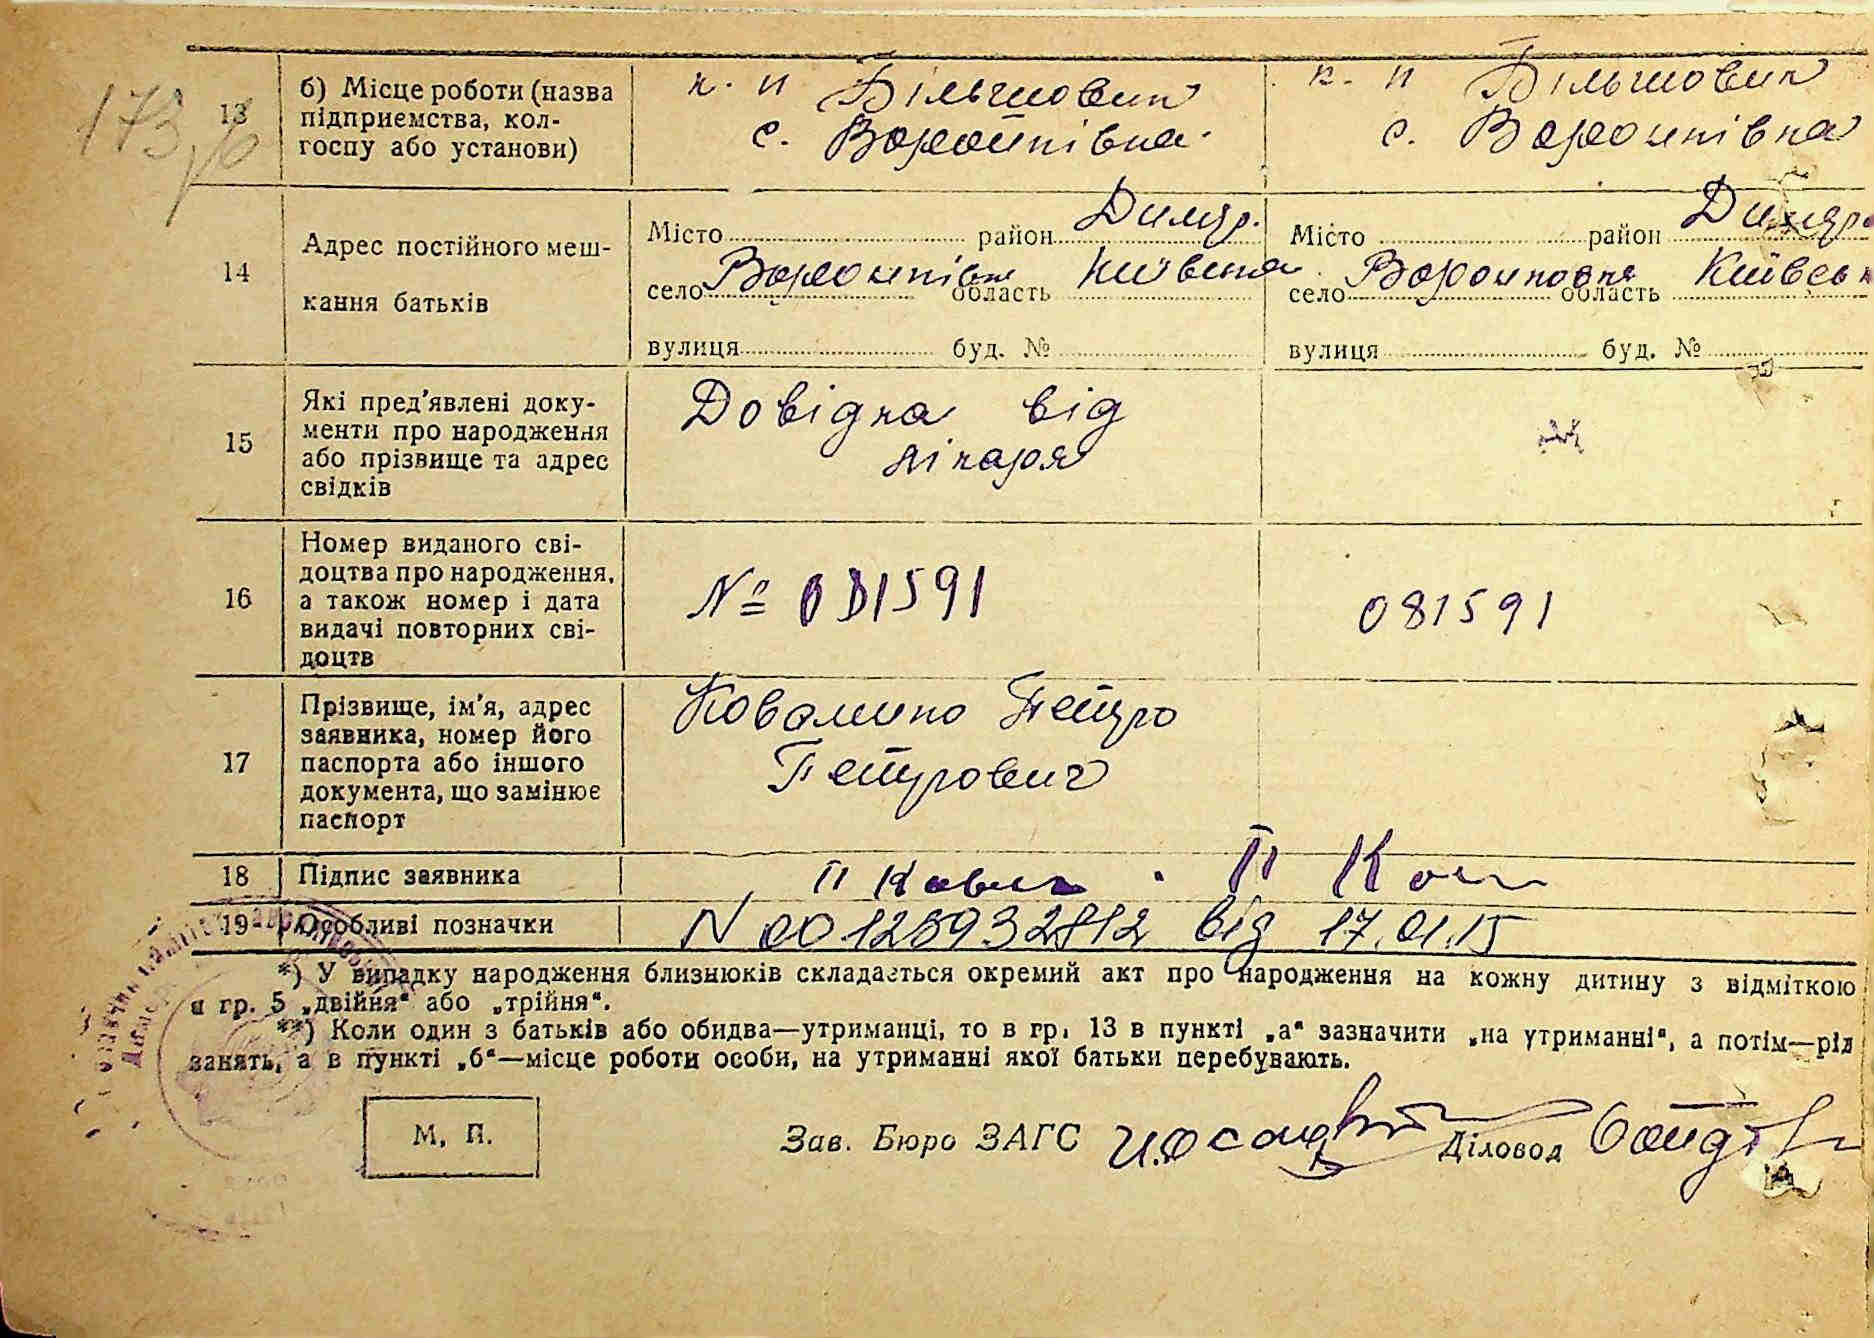 173
13 б) Місце роботи (назва підприємства, колгоспу або установи)
к. п Більшовик
с. Воропнівка
к. п Більшовик
с. Воропнівка
14 Адрес постійного мешкання батьків
Місто район Димер.
село область Київська
вулиця буд. №
Місто район Димер
село область Київськ
вулиця буд. №
15 Які пред'явлені документи про народження або прізвище та адрес свідків
Довідка від
лікаря
16 Номер виданого свідоцтва про народження, а також номер і дата видачі повторних свідоцтв
№ 081591
081591
17 Прізвище, ім'я, адрес заявника, номер його паспорта або іншого документа, що замінює паспорт
Коваленко Петро
Петрович
18 Підпис заявника
П П К
19 Особливі позначки
N 00128932812 від 17.01.15
*) У випадку народження близнюків складається окремий акт про народження на кожну дитину з відміткою
в гр. 5 „двійня“ або „трійня“.
**) Коли один з батьків або обидва—утриманці, то в гр. 13 в пункті „а“ зазначити „на утриманні“, а потім—рід
занять, а в пункті „б“—місце роботи особи, на утриманні якої батьки перебувають.
М. П.
Зав. Бюро ЗАГС
Діловод